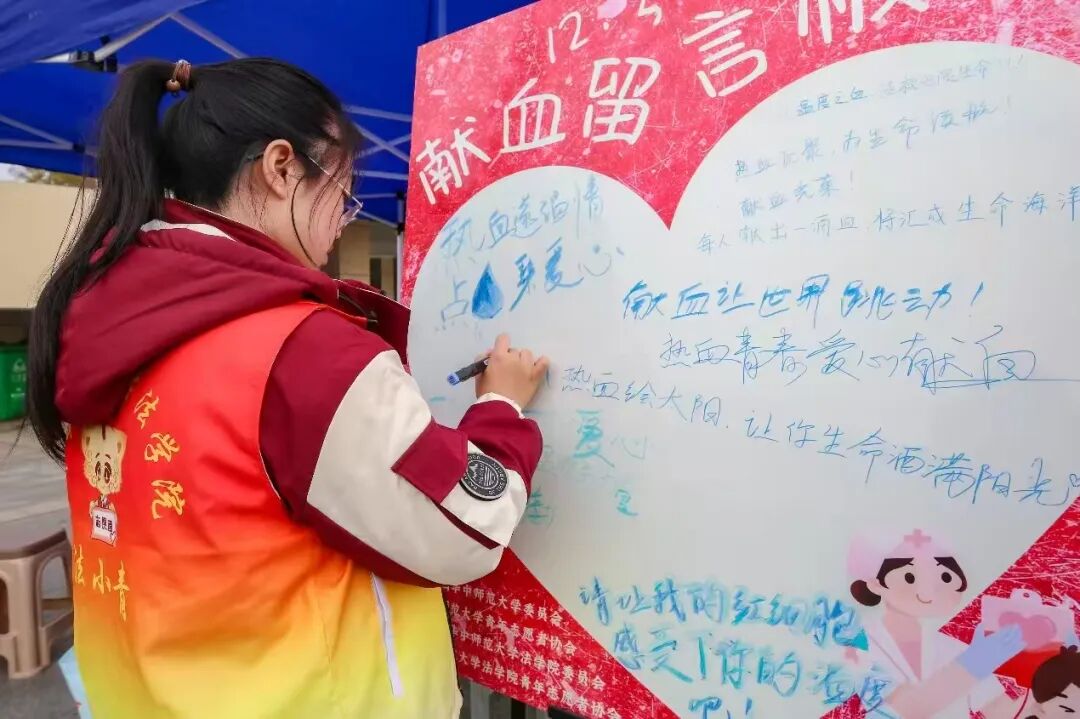 12.5
献血留言板
温度之血 拯救
热血汇聚,为生命護航!
献血光荣!
每人献出一滴血,将汇成生命海洋
热血递温情
点 聚爱心
献血让世界跳动!
热血青春爱心献向
热血绘太阳,让你生命洒满阳光
爱心
请让我的红细胞
感受下你的温度
吧!!
法学院
法小青
华中师范大学委员会
师范大学青年志愿者协会
华中师范大学法学院委员会
大学法学院青年志愿者协会